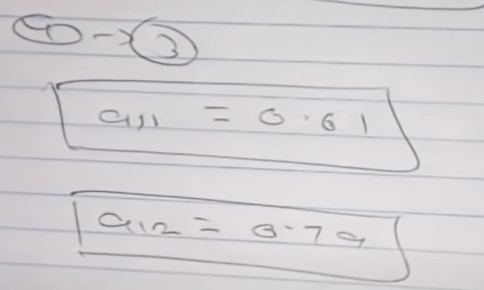 ④ → ③
a11 = 0.61
a12 = 0.79